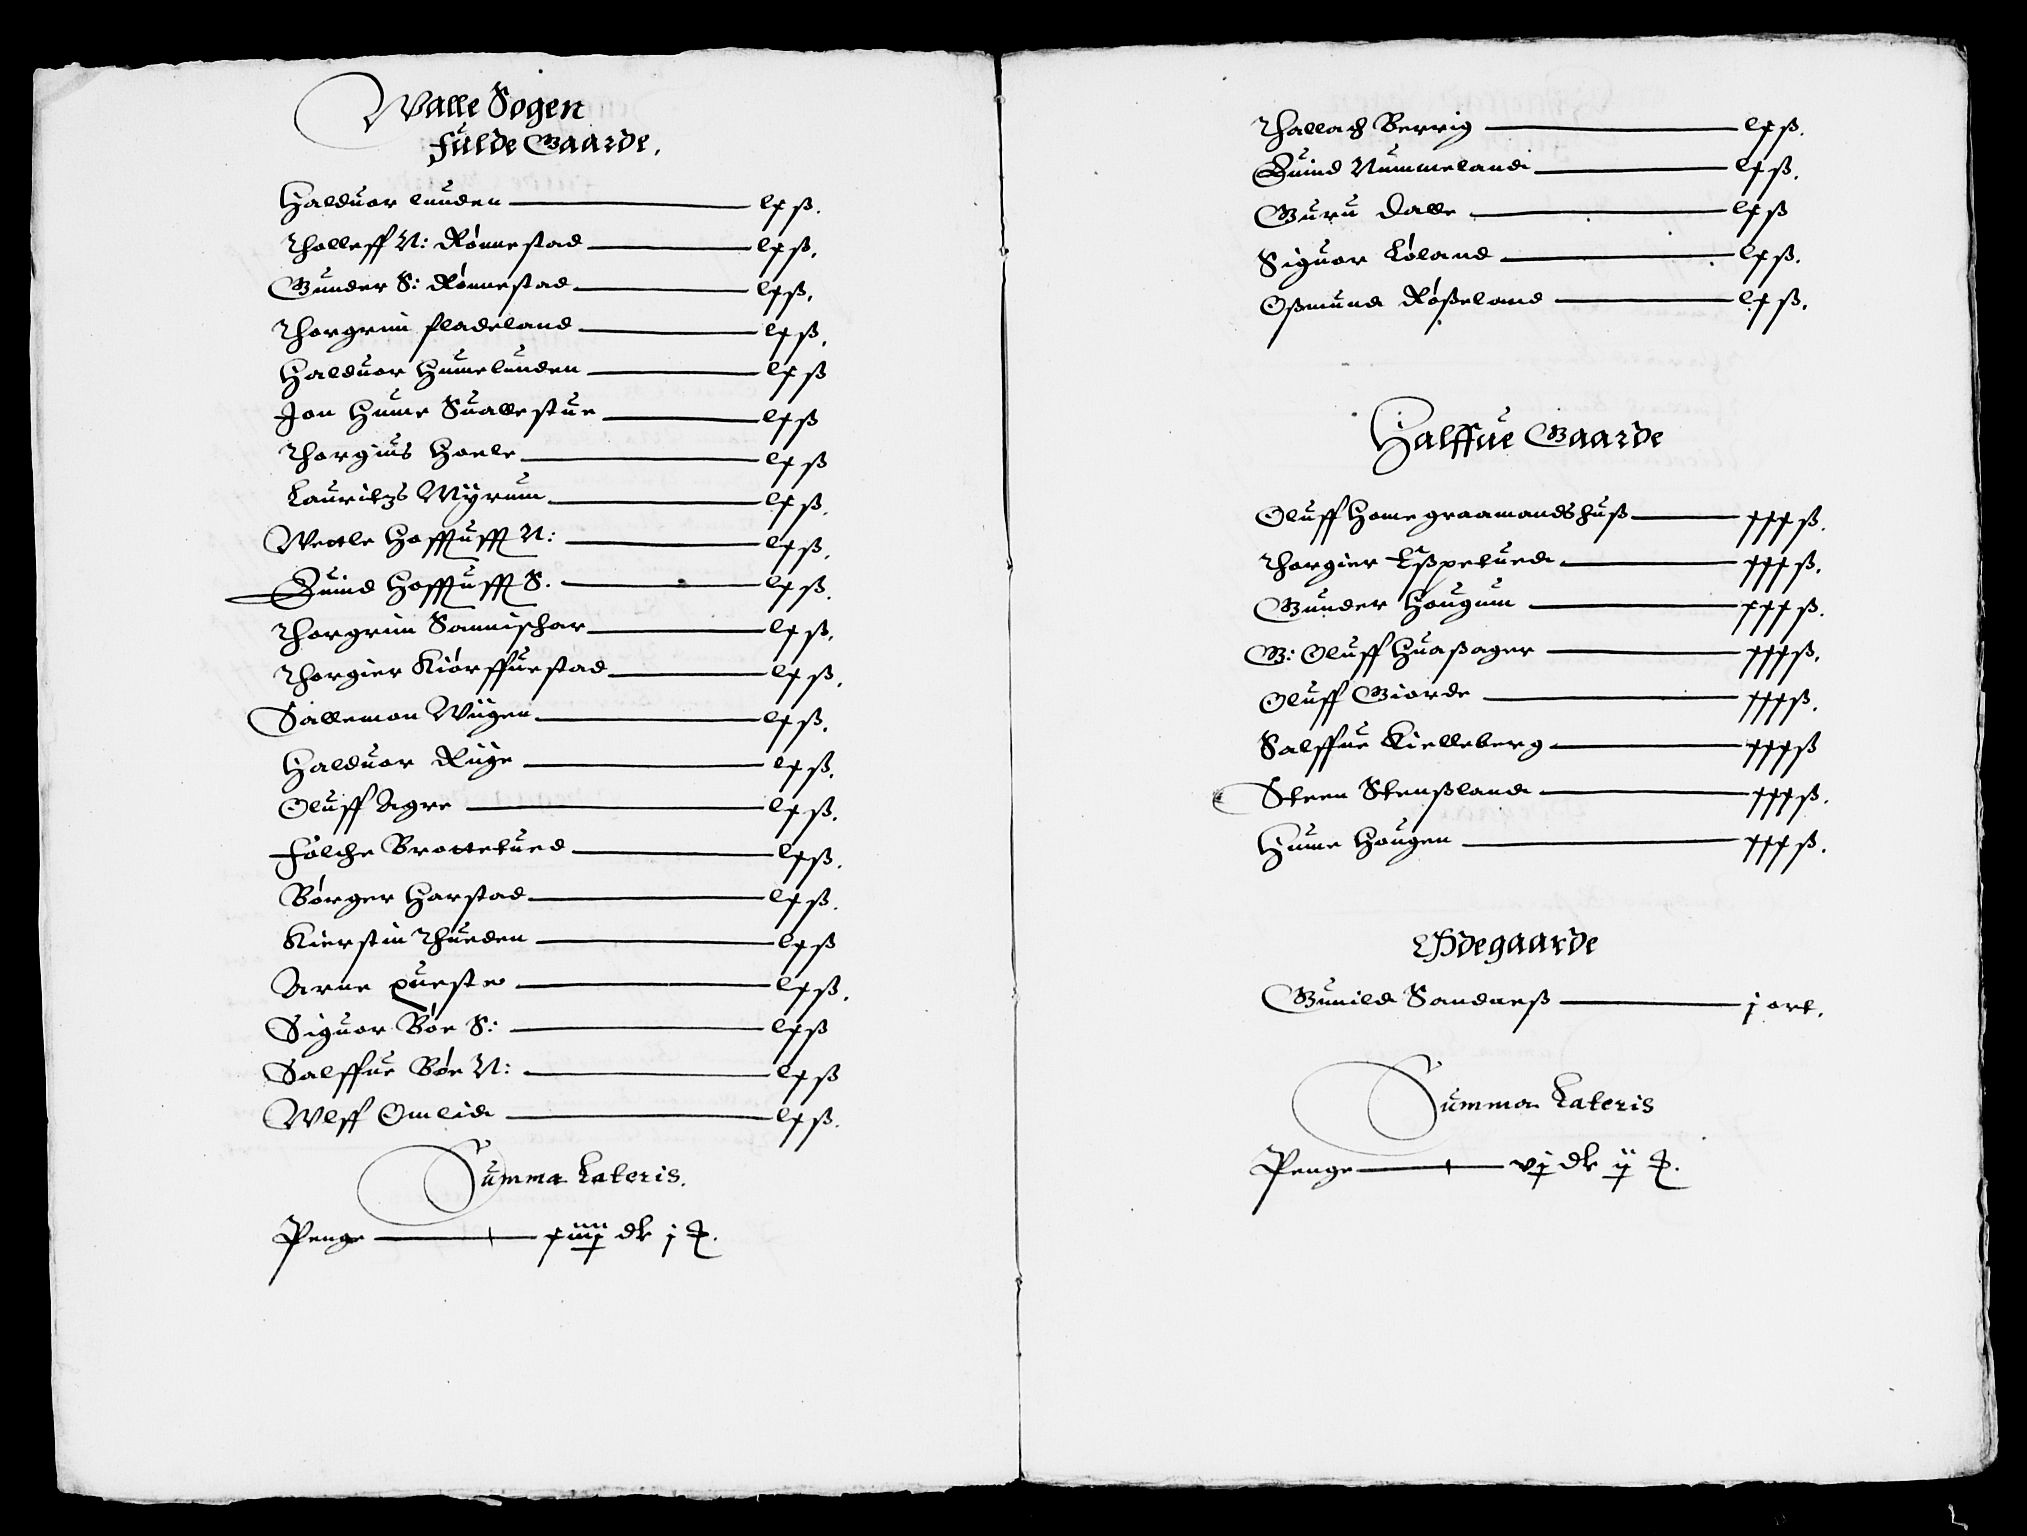 Walle Sogen
Fulde Gaarde.
Halduor lunden lx ß.
Tholleff N: Rönnestad lx ß.
Gunder S: Rönnestad lx ß.
Thorgrim fladeland lx ß.
Halduor Humelunden lx ß
Jon Hume Suallestue lx ß
Thorgius Hoele lx ß
Lauritzs Myrum lx ß.
Wettle Hoffuff N: lx ß.
Suind Hoffuff S. lx ß.
Thorgrim Sannishar lx ß.
Thorgier Kiörffuestad lx ß.
Sallemon Wiigen lx ß.
Halduor Ryge lx ß.
Oluff Agre lx ß.
Folche Brottetued lx ß.
Börger Harstad lx ß.
Kierstin Thueden lx ß
Arne queste lx ß.
Siguor Böe S: lx ß
Salffue Böe N: lx ß
Wlff Omlid lx ß.
Summa Lateris.
Penge xiiij dr j ꝶ.
Thallach Berrig lx ß.
Suind Nummeland lx ß.
Guru Dalle lx ß
Siguor Löland lx ß.
Oßmund Rößeland lx ß.
Halffue Gaarde
Oluff Home graamandshuß xxx ß.
Thorgier Eßpetued xxx ß.
Gunder Hougum xxx ß.
G: Oluff Huaßager xxx ß.
Oluff Giorde xxx ß.
Salffue Kielleberg xxx ß
Steen Stenßland xxx ß.
Hume Hougen xxx ß.
Ödegaarde
Gunild Sandneß j ort.
Summa Lateris
Penge vj dr ij ꝶ.